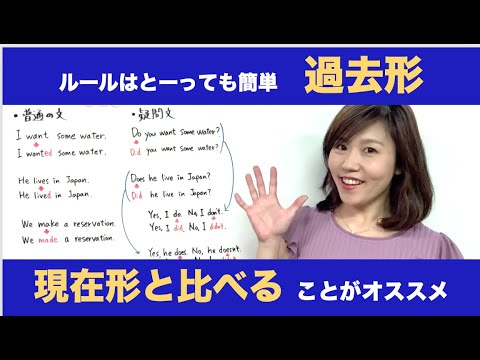 ルールはとーっても簡単 過去形
・普通の文
I want some water.
I wanted some water.
He lives in Japan.
He lived in Japan.
We make a reservation.
We made a reservation.
・疑問文
Do you want some water?
Did you want some water?
Does he live in Japan?
Did he live in Japan?
Yes, I do. No, I don't.
Yes, I did. No, I didn't.
Yes, he does. No, he doesn't.
現在形と比べる ことがオススメ